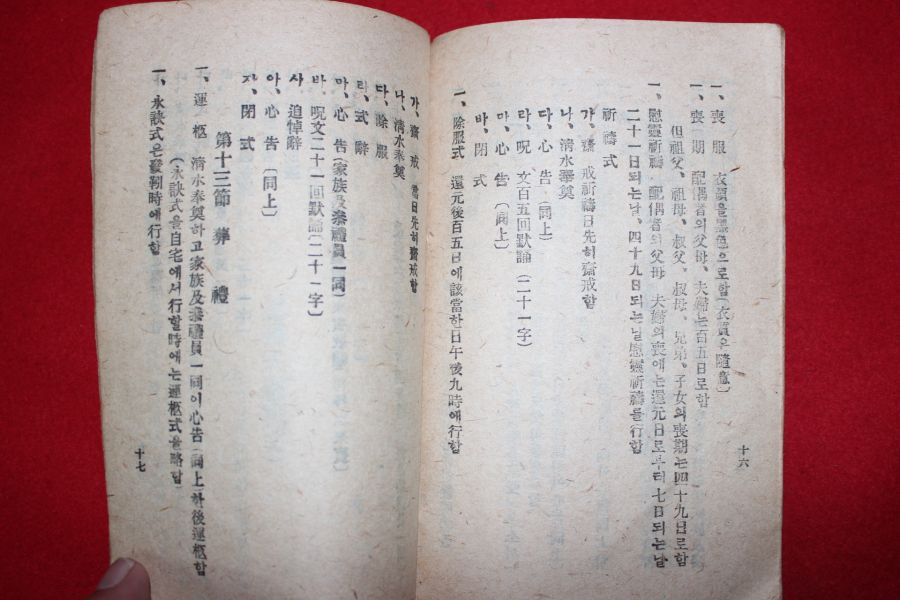 一、喪 服 衣領을黑色으로함(衣質은隨意)
一、喪 期 配偶者의父母、夫婦는百五日로함
但祖父、祖母、叔父、叔母、兄弟、子女의喪期는四十九日로함
一、慰靈祈禱 配偶者의父母 夫婦의喪에는還元日로부터七日되는날
二十一日되는날、四十九日되는날慰靈祈禱를行함
祈禱式
가、齋 戒祈禱日先히齋戒함
나、淸水奉奠
다、心 告(同上)
라、呪 文(百五回默誦(二十一字)
마、心 告(同上)
바、閉 式
一、除服式 還元後百五日에該當한日午後九時에行함
十六
가、齋 戒 當日先히齋戒함
나、淸水奉奠
다、除 服
라、式 辭
마、心 告(家族及參禮員一同)
바、呪文二十一回默誦(二十一字)
사、追悼辭
아、心 告(同上)
자、閉 式
第十三節 葬 禮
一、運 柩 淸水奉奠하고家族及參禮員一同이心告(同上)한後運柩함
(永訣式을自宅에서行할時에는運柩式을略함)
一、永訣式은發靷時에行함
十七